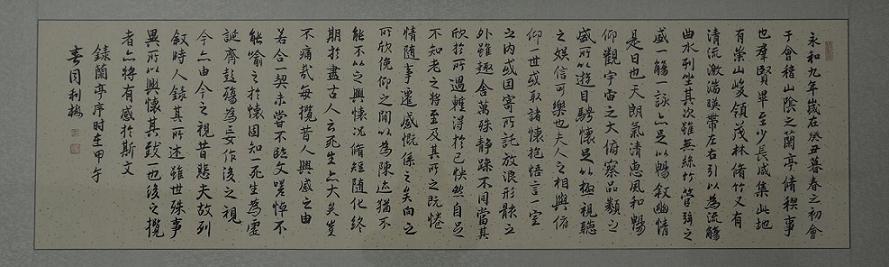 永和九年歲在癸丑暮春之初會
于會稽山陰之蘭亭脩稧事
也羣賢畢至少長咸集此地
有崇山峻領茂林脩竹又有
清流激湍暎帶左右引以為流觴
曲水列坐其次雖無絲竹管弦之
盛一觴一詠亦足以暢敘幽情
是日也天朗氣清惠風和暢
仰觀宇宙之大俯察品類之
盛所以遊目騁懷足以極視聽
之娛信可樂也夫人之相與俯
仰一世或取諸懷抱悟言一室
之內或因寄所託放浪形骸之
外雖趣舍萬殊靜躁不同當其
欣於所遇暫得於己快然自足
不知老之將至及其所之既倦
情隨事遷感慨係之矣向之
所欣俛仰之間以為陳迹猶不
能不以之興懷況脩短隨化終
期於盡古人云死生亦大矣豈
不痛哉每攬昔人興感之由
若合一契未嘗不臨文嗟悼不
能喻之於懷固知一死生為虛
誕齊彭殤為妄作後之視
今亦由今之視昔悲夫故列
敘時人錄其所述雖世殊事
異所以興懷其致一也後之攬
者亦將有感於斯文
錄蘭亭序時在甲午
春